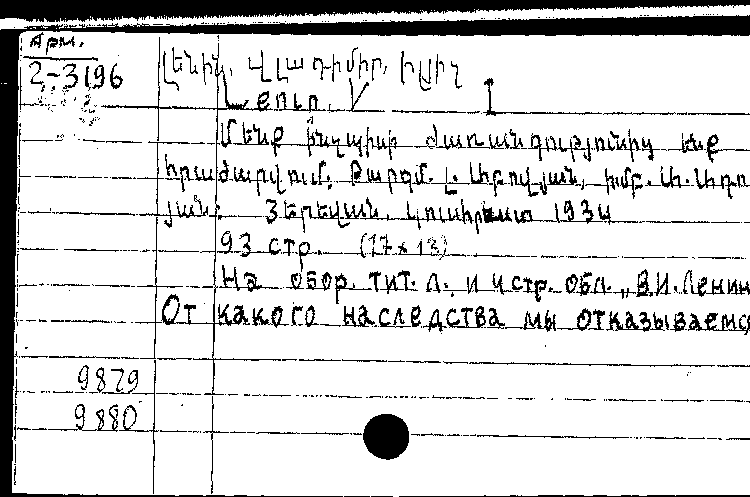 Арм.
2-3196
Լենին, Վլադիմիր, Իլյիչ
Մենք ինչպիսի ժառանգությունից ենք
հրաժարվում: Թարգմ. Լ. Աբովյան, խմբ. Ա.
յան: Յերեվան, Կուսհրատ 1934
93 стр. (17x13)
На обор. тит. л. и 4 стр. обл. „В.И.Ленин
От какого наследства мы отказываемся
9879
9880